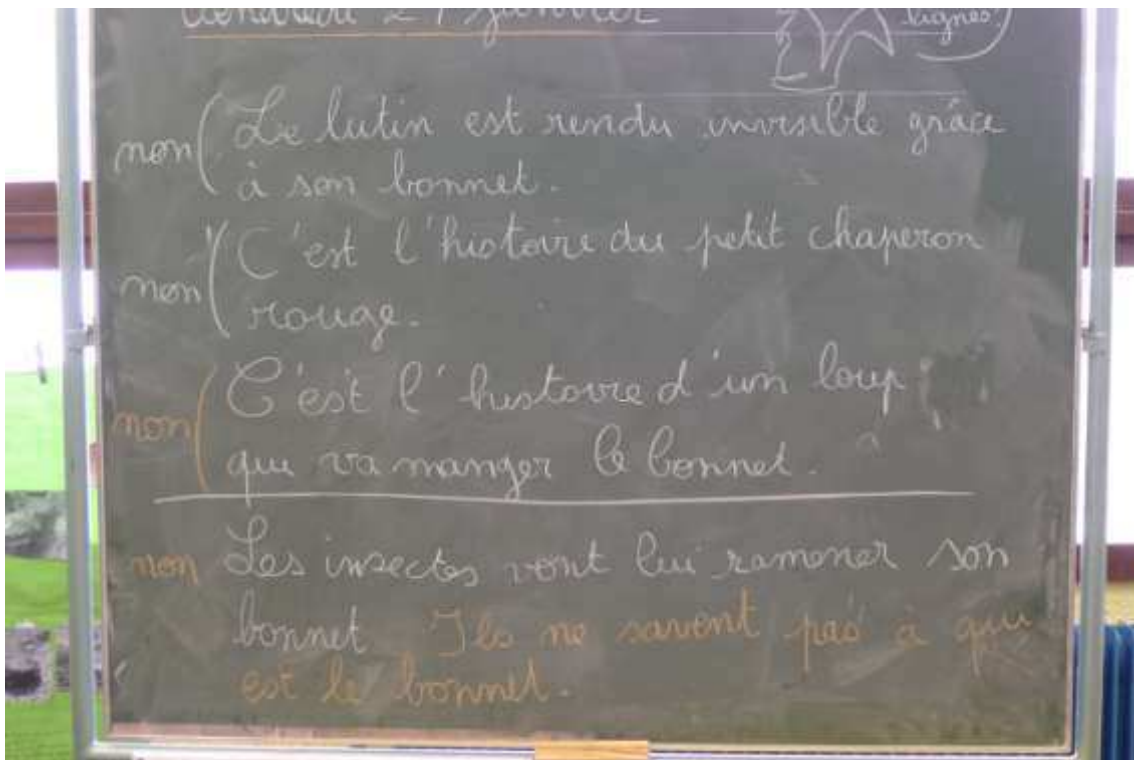 vendredi 27 janvier
lignes!
non ( Le lutin est rendu invisible grâce
à son bonnet.
non ( C'est l'histoire du petit chaperon
rouge.
non ( C'est l'histoire d'un loup
qui va manger le bonnet.
non Les insectes vont lui ramener son
bonnet Ils ne savent pas à qui
est le bonnet.